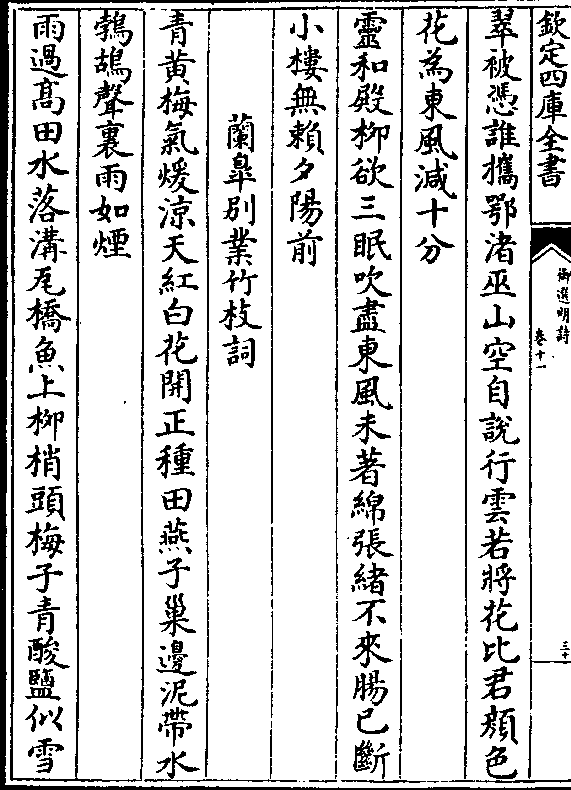 欽定四庫全書
御選明詩
卷十一
三十
翠被憑誰攜鄂渚巫山空自説行雲若將花比君顔色
花為東風減十分
靈和殿柳欲三眠吹盡東風未著綿張緒不來腸已斷
小樓無賴夕陽前
蘭臯别業竹枝詞
青黄梅氣煖涼天紅白花開正種田燕子巢邊泥帶水
鵓鴣聲裏雨如煙
雨過髙田水落溝瓦橋魚上柳梢頭梅子青酸鹽似雪